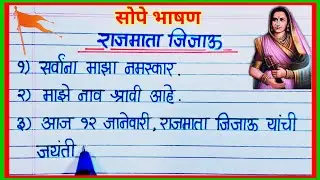 सोपे भाषण
राजमाता जिजाऊ
१) सर्वांना माझा नमस्कार.
२) माझे नाव श्रावी आहे.
३) आज १२ जानेवारी, राजमाता जिजाऊ यांची
जयंती